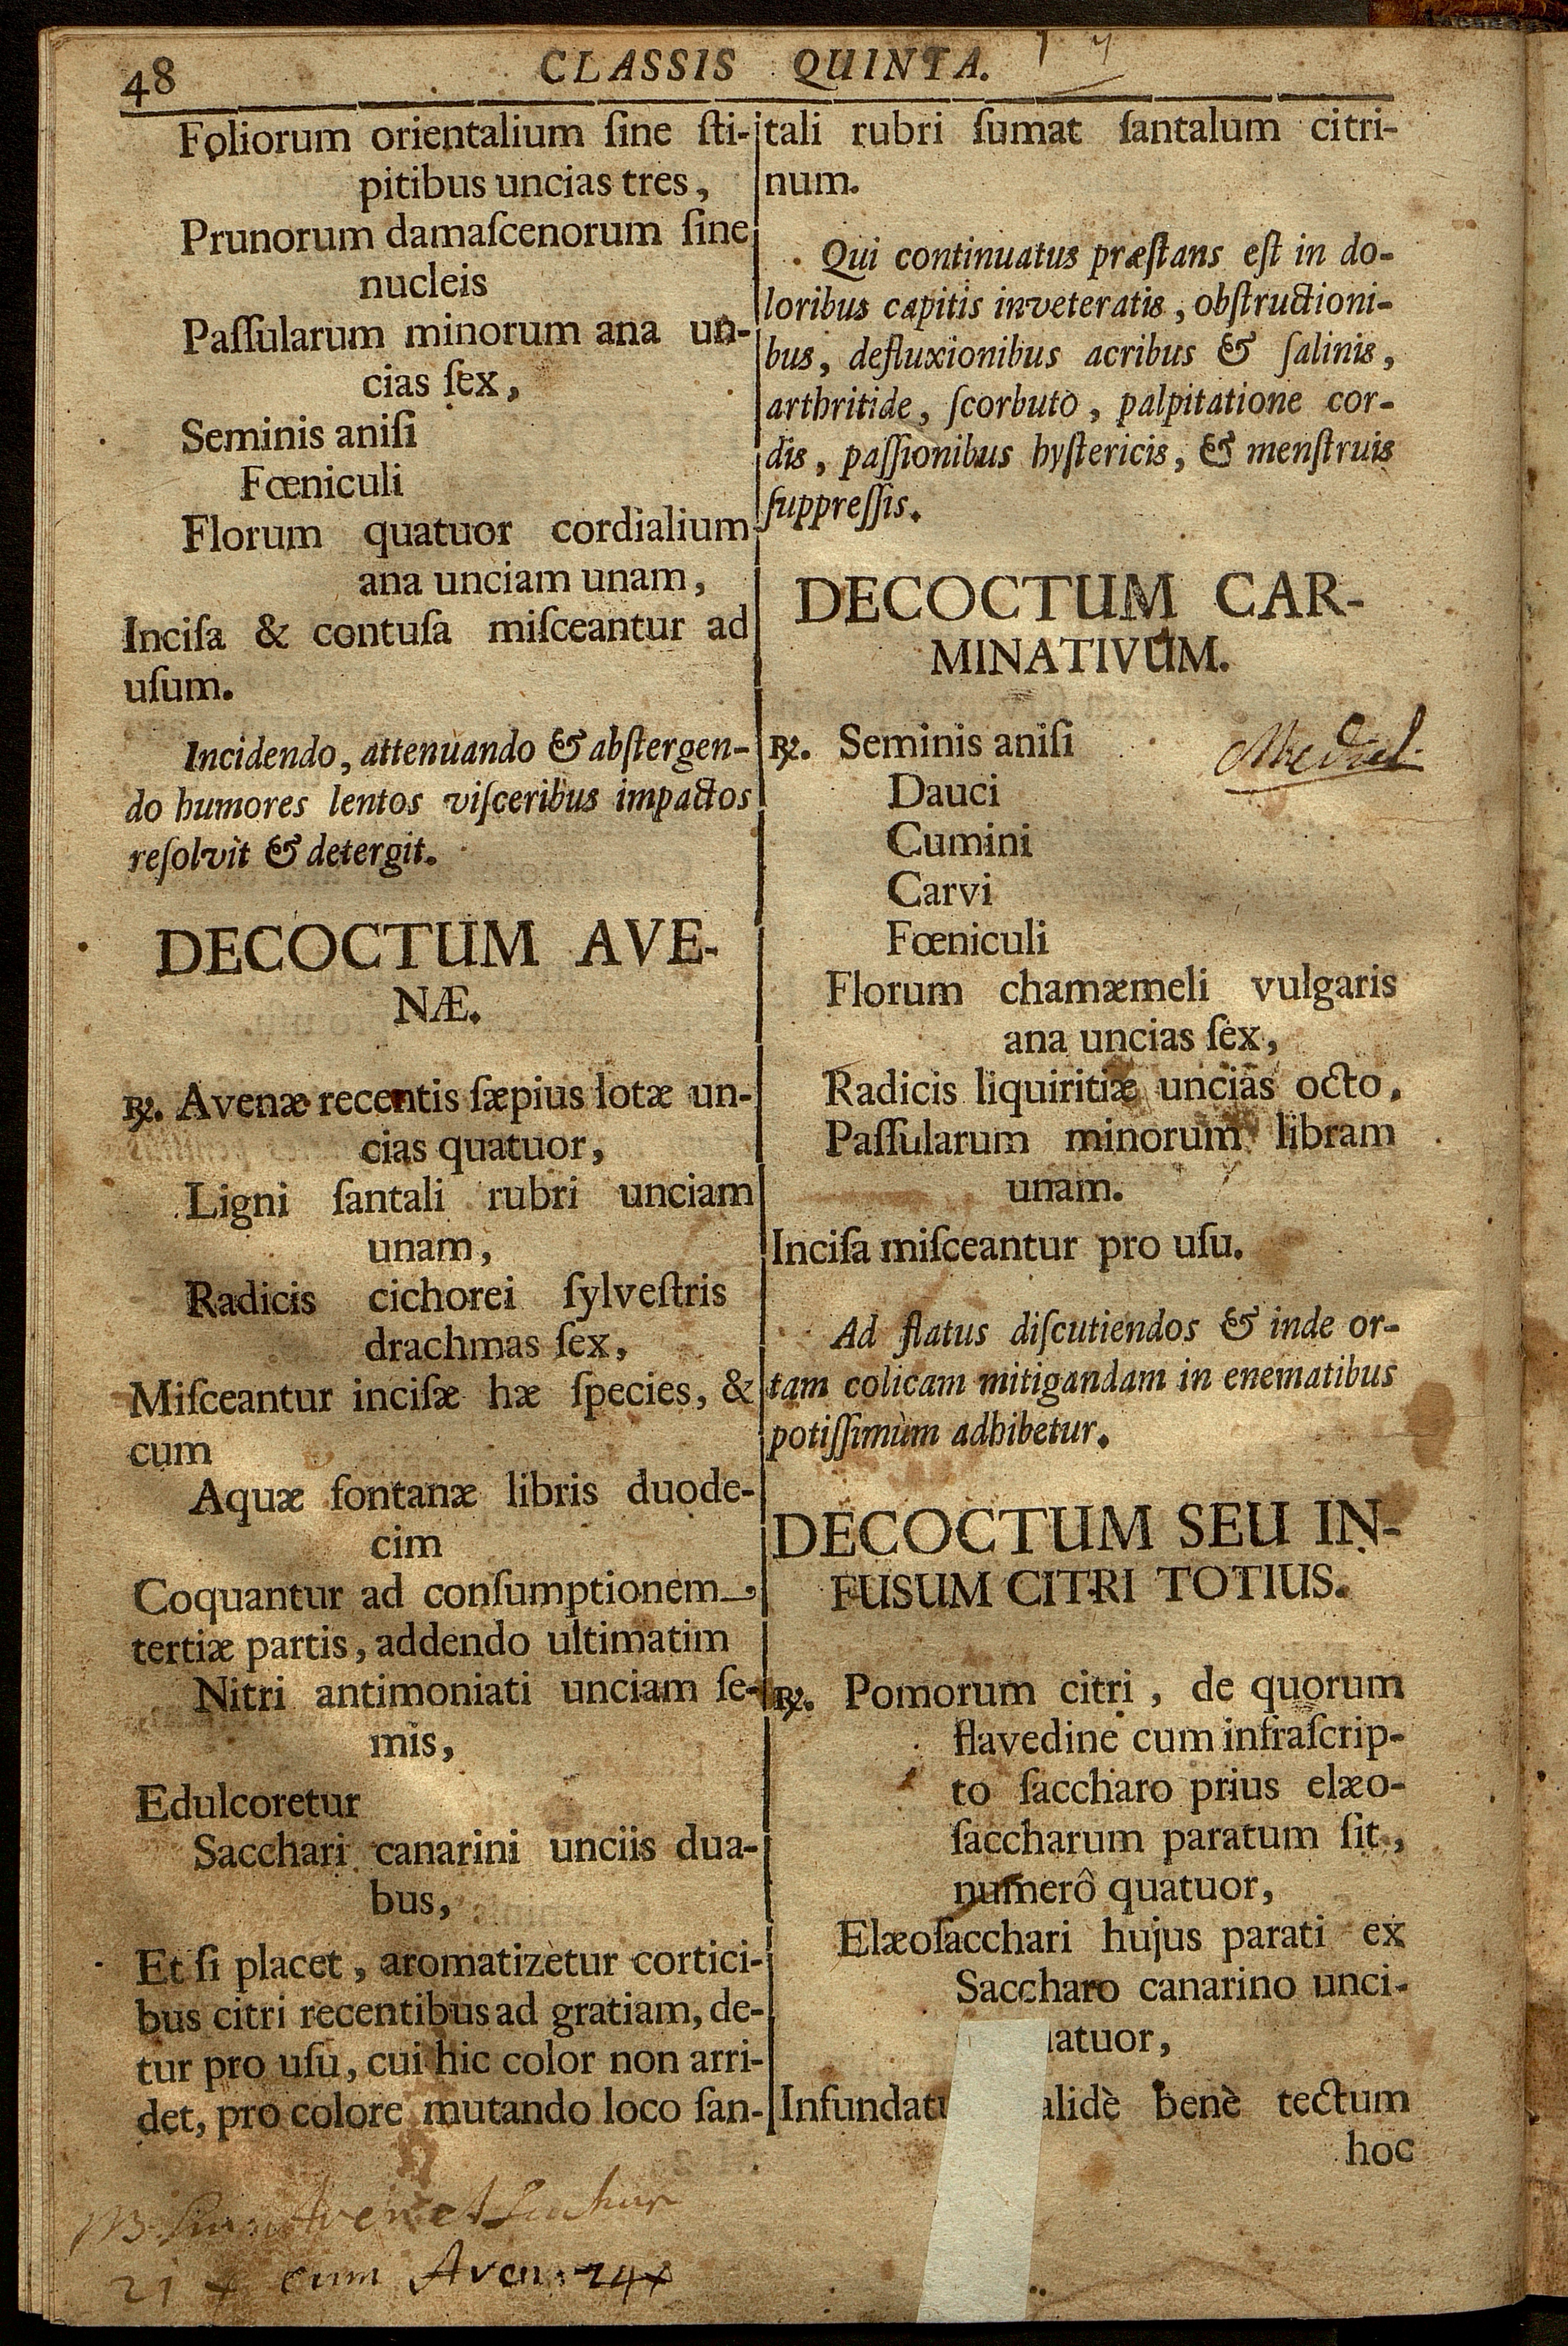 48
CLASSIS QUINTA.
Foliorum orientalium ſine ſti-
pitibus uncias tres,
Prunorum damaſcenorum ſine
nucleis
Paſſularum minorum ana un-
cias ſex,
Seminis aniſi
Fœniculi
Florum quatuor cordialium
ana unciam unam,
Inciſa & contuſa miſceantur ad
uſum.
Incidendo, attenuando & abſtergen-
do humores lentos viſceribus impactos
reſolvit & detergit.
DECOCTUM AVE-
NÆ.
℞. Avenæ recentis ſæpius lotæ un-
cias quatuor,
Ligni ſantali rubri unciam
unam,
Radicis cichorei ſylveſtris
drachmas ſex,
Miſceantur inciſæ hæ ſpecies, &
cum
Aquæ fontanæ libris duode-
cim
Coquantur ad conſumptionem
tertiæ partis, addendo ultimatim
Nitri antimoniati unciam ſe-
mis,
Edulcoretur
Sacchari canarini unciis dua-
bus,
Et ſi placet, aromatizetur cortici-
bus citri recentibus ad gratiam, de-
tur pro uſu, cui hic color non arri-
det, pro colore mutando loco ſan-
tali rubri ſumat ſantalum citri-
num.
Qui continuatus præſtans eſt in do-
loribus capitis inveteratis, obſtructioni-
bus, defluxionibus acribus & ſalinis,
arthritide, ſcorbuto, palpitatione cor-
dis, paſſionibus hyſtericis, & menſtruis
ſuppreſſis.
DECOCTUM CAR-
MINATIVUM.
℞. Seminis aniſi
Dauci
Cumini
Carvi
Fœniculi
Florum chamæmeli vulgaris
ana uncias ſex,
Radicis liquiritiæ uncias octo,
Paſſularum minorum libram
unam.
Inciſa miſceantur pro uſu.
Ad flatus diſcutiendos & inde or-
tam colicam mitigandam in enematibus
potiſſimùm adhibetur.
DECOCTUM SEU IN-
FUSUM CITRI TOTIUS.
℞. Pomorum citri, de quorum
flavedine cum infraſcrip-
to ſaccharo prius elæo-
ſaccharum paratum ſit,
numerô quatuor,
Elæoſacchari hujus parati ex
Saccharo canarino unci-
atuor,
Infundatu alidè benè tectum
hoc
21 cum Aven: 24